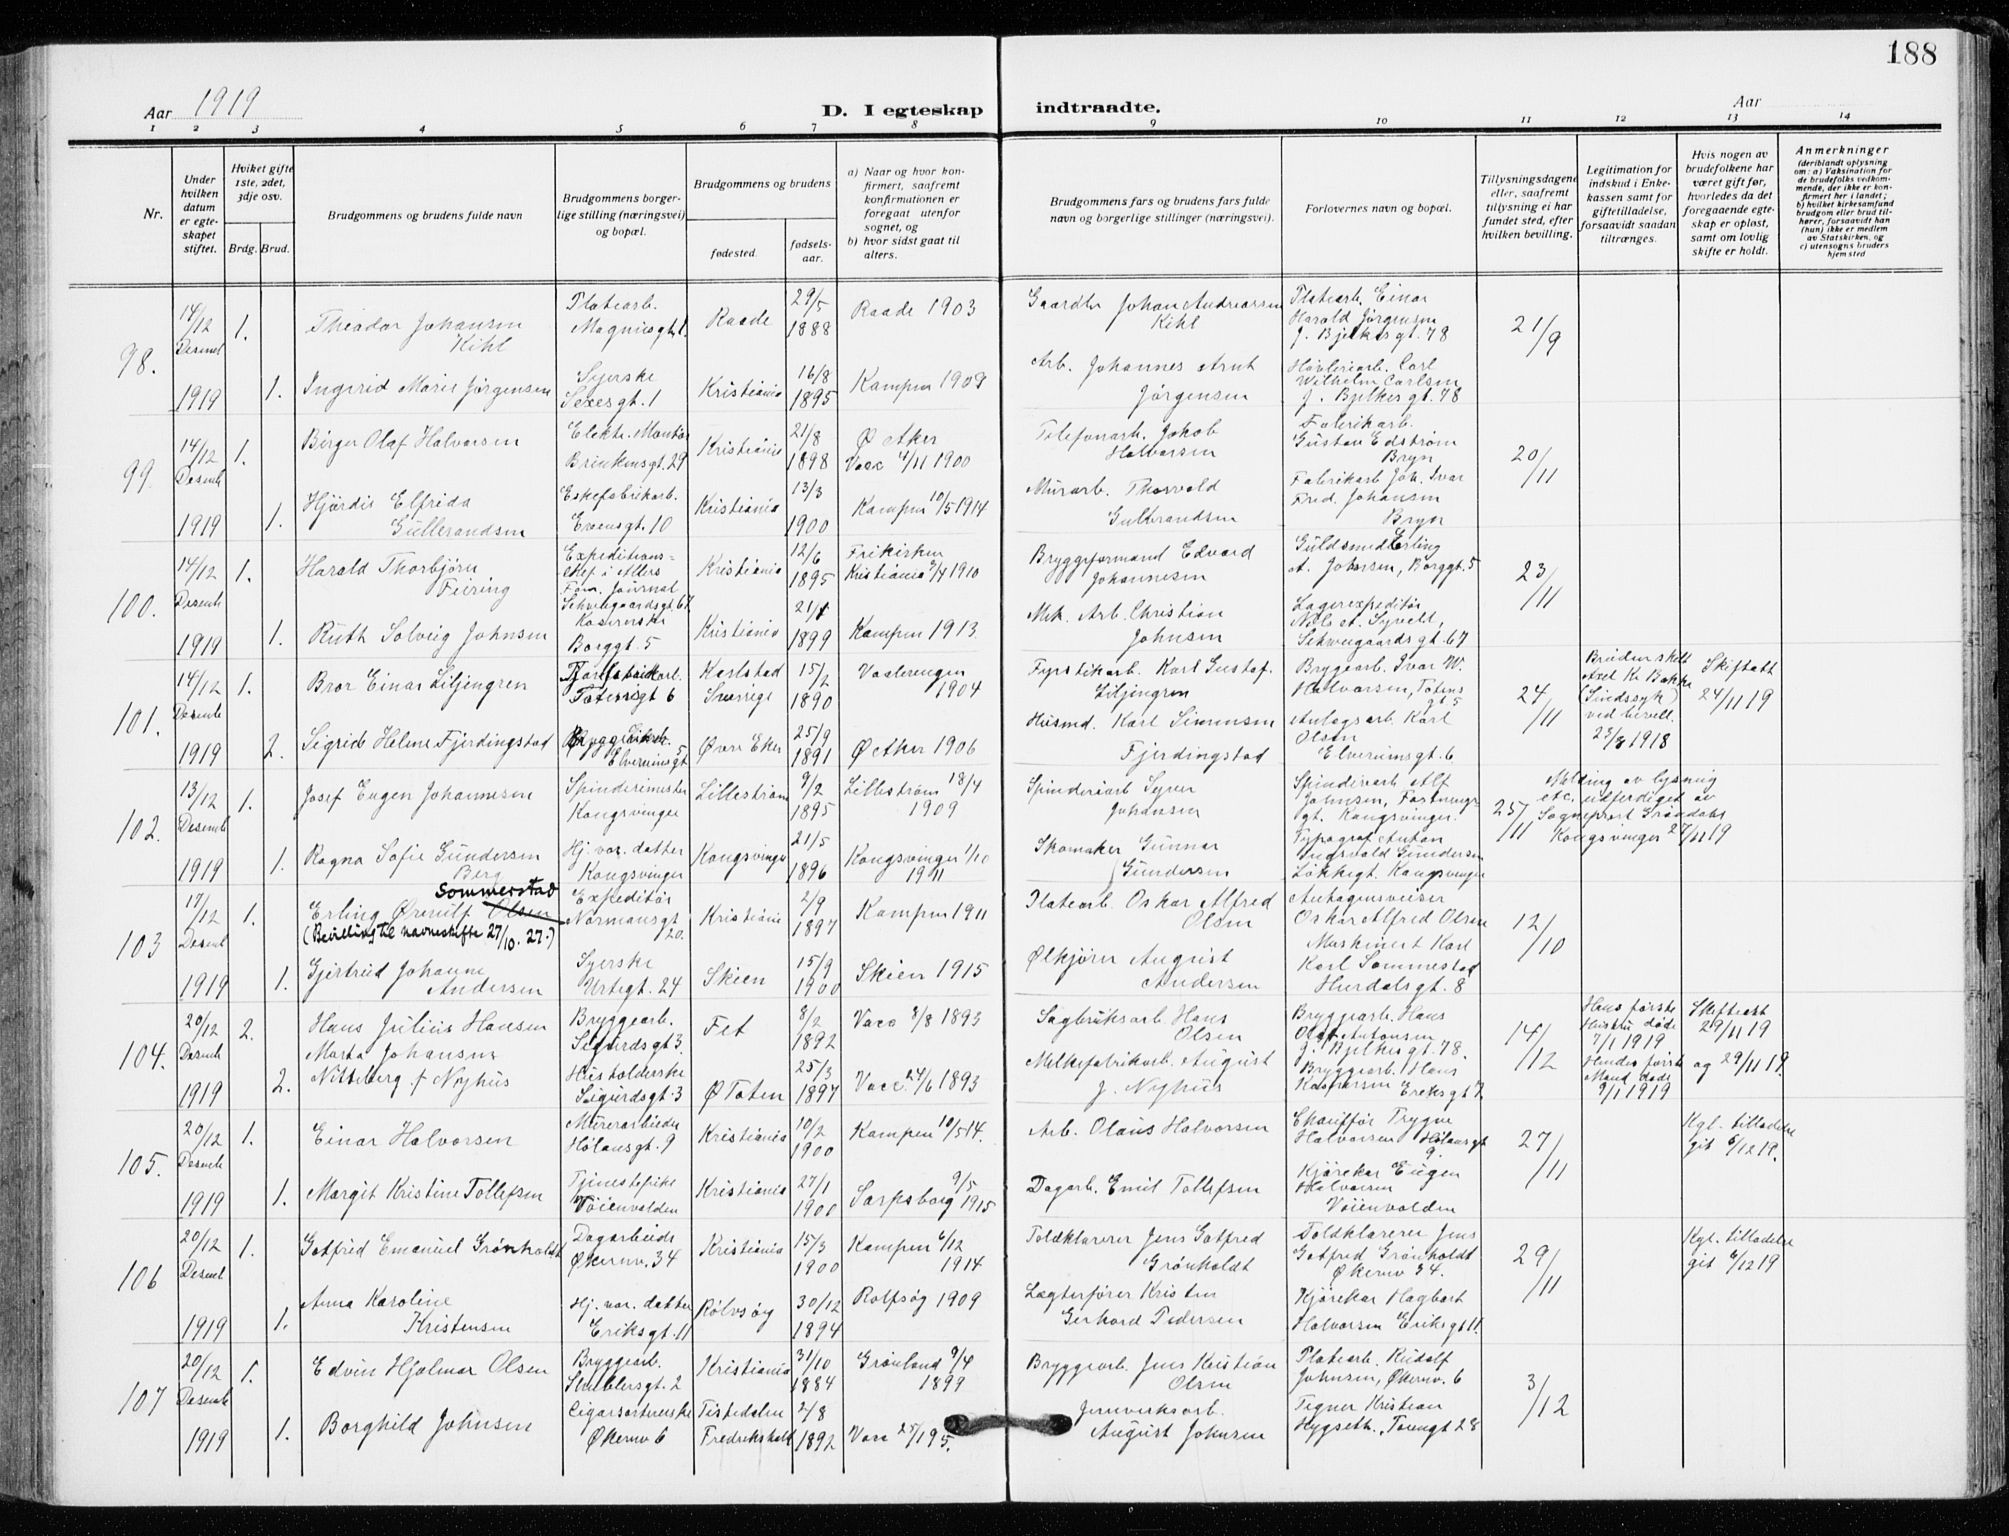 188
Aar 1919
D. I egteskap indtraadte.
Aar
1 2 3 4 5 6 7 8 9 10 11 12 13 14
Nr.
Under hvilken datum er egteskapet stiftet.
Hvilket gifte 1ste, 2det, 3dje osv.
Brdg. Brud.
Brudgommens og brudens fulde navn
Brudgommens borgerlige stilling (næringsvei) og bopæl.
Brudgommens og brudens
fødested.
fødselsaar.
a) Naar og hvor konfirmert, saafremt konfirmationen er foregaat utenfor sognet, og
b) hvor sidst gaat til alters.
Brudgommens fars og brudens fars fulde navn og borgerlige stillinger (næringsvei).
Forlovernes navn og bopæl.
Tillysningsdagene eller, saafremt tillysning ei har fundet sted, efter hvilken bevilling.
Legitimation for indskud i Enkekassen samt for giftetilladelse, forsaavidt saadan tiltrænges.
Hvis nogen av brudefolkene har været gift før, hvorledes da det foregaaende egteskap er opløst, samt om lovlig skifte er holdt.
Anmerkninger
(deriblandt oplysning om: a) Vaksination for de brudefolks vedkommende, der ikke er konfirmert her i landet; b) hvilket kirkesamfund brudgom eller brud tilhører, forsaavidt han (hun) ikke er medlem av Statskirken, og c) utensogns bruders hjemsted
98. 14/12 Desemb 1919
1. Theodor Johansen Kihl
Platearb. Magnusgt. 1
Raade 29/5 1888
Raade 1903
Gaardbr Johan Andreassen Kihl
Platearb. Einar Harald Jørgensen J. Bjelkesgt. 78
21/9
1. Ingerid Marie Jørgensen
Syerske Sexesgt. 1
Kristiania 16/8 1895
Kampen 1909
Arb. Johannes Arnt Jørgensen
Høvleriarb. Carl Wilhelm Carlsen J. Bjelkesgt. 78
99. 14/12 Desemb 1919
1. Birger Olaf Halvorsen
Elektr. Montør Brinkensgt. 29
Kristiania 21/8 1898
Ø Aker Vacc 4/11 1900
Telefonarb. Jakob Halvorsen
Fabrikarb. Gustav Edstrøm Bryn
20/11
1. Hjørdis Elfrida Gulbrandsen
Eskefabrikarb. Evensgt. 10
Kristiania 13/3 1900
Kampen 10/5 1914
Murarb. Thorvald Gulbrandsen
Fabrikarb Joh. Ivar Fred. Johansen Bryn
100. 14/12 Desemb 1919
1. Harald Thorbjørn Feiring
Expeditionschef i Allers Fam. Journal Schweigaardsgt. 67
Kristiania 12/6 1895
Frikirken Kristiania 3/4 1910
Bryggeformand Edvard Johannesen
Guldsmed Erling A. Johnsen, Borggt. 5
23/11
1. Ruth Solveig Johnsen
Kasererske Borggt. 5
Kristiania 21/1 1899
Kampen 1913.
Mek. Arb. Christian Johnsen
Lagerexpeditør Nils A. Syveld, Schweigaardsgt. 67
101. 14/12 Desemb 1919
1. Bror Einar Liljengren
Totensgt 6
Karlstad Sverrige 15/2 1890
Vaalerengen 1904
Fyrstikarb. Karl Gustaf Liljengren
Bryggearb. Ivar W. Halvorsen, Totensgt 5
24/11
Bruden skilt Axel K. Bakke (Sindssyk) ved bevill. 23/8 1918
Skifteatt 24/11 19
2. Sigrid Helene Fjerdingstad
Elverumsgt. 5
Øvre Eker 25/9 1891
Ø Aker 1906
Husmd. Karl Simensen Fjerdingstad
Anlagsarb. Karl Olsen Elverumsgt. 6
102. 13/12 Desemb 1919
1. Josef Eugen Johannesen
Spinderimester Kongsvinger
Lillestrøm 9/2 1895
Lillestrøm 18/4 1909
Spinderiarb Syver Johansen
Spinderiarb Alf Johnsen, Fæstningsgt. Kongsvinger.
25/11
Melding av lysning etc. utferdiget av Sogneprest Grøndahl Kongsvinger 27/11 19
1. Ragna Sofie Gundersen Berg
Hj. vær. datter Kongsvinger
Kongsvinger 21/5 1896
Kongsvinger 1/10 1911
Skomaker Gunnar Gundersen
Typograf Anton Ingvald Gundersen Løkkegt. Kongsvinger
103 17/12 Desemb 1919
1. Erling Ørnulf Olsen Sommerstad
(Bevilling til navneskifte 27/10. 27.)
Expeditør Normansgt 20.
Kristiania 2/9 1897
Kampen 1911
Platearb. Oskar Alfred Olsen
Oskar Alfred Olsen
12/10
1. Gjertrud Johanne Andersen
Syerske Urtegt. 24
Skien 15/9 1900
Skien 1915
Ølkjører August Andersen
Maskinert Karl Karl Sommestad Hurdalsgt. 8
104. 20/12 Desemb 1919
2. Hans Julius Hansen
Bryggearb. Sigurdsgt 3.
Fet 8/2 1892
Vacc 8/8 1893
Sagbruksarb. Hans Olsen
Bryggearb. Hans Olaf Antonsen J. Bjelkesgt. 78.
14/12
Hans første Hustru døde 7/1 1919
Skifteatt 29/11 19
2. Marta Johansen Nitteberg f Nyhus
Husholderske Sigurdsgt. 3
Ø Toten 25/3 1897
Vacc. 24/6 1893
Melkefabrikarb. August J. Nyhus
Bryggearb. Hans Kaspersen Eriksgt 7.
Hendes første Mand døde 9/1 1919
og 29/11 19
105. 20/12 Desemb 1919
1. Einar Halvorsen
Murerarbeider Hølansgt. 9
Kristiania 10/2 1900
Kampen 10/5 14.
Arb. Olaus Halvorsen
Chauffør Trygve Halvorsen Hølansgt 9.
27/11
Kgl. tilladelse git 6/12 19.
1. Margit Kristine Tollefsen
Tjenestepike Vøienvolden
Kristiania 27/1 1900
Sarpsborg 9/5 1915
Dagarb. Emil Tollefsen
Kjørekar Eugen Halvorsen Vøienvolden
106 20/12 Desemb 1919
1. Gotfred Emanuel Grønholdt
Dagarbeider Økernv. 34
Kristiania 15/3 1900
Kampen 6/12 1914
Toldklarerer Jens Gotfred Grønholdt
Toldklarerer Jens Gotfred Grønholdt Økernv 34.
29/11
Kgl. tilladelse git 6/12 19
1. Anna Karoline Kristensen
Hj. vær. datter Eriksgt. 11
Rolvsøy 30/12 1894
Rolfsøg 1909
Lægterfører Kristen Gerhard Pedersen
Kjørekar Hagbart Halvorsen Eriksgt 11.
107 20/12 Desemb 1919
1. Edvin Hjalmar Olsen
Bryggearb. Stublersgt. 2
Kristiania 31/10 1884
Grønland 9/4 1899
Bryggearb. Jens Kristian Olsen
Platearb. Rudolf Johnsen, Økernv. 6
3/12
1. Borghild Johnsen
Cigarsorterske Økernv 6
Tistedalen Fredrikshald 2/8 1892
Vacc 25/1 95.
Jernverksarb. August Johnsen
Tegner Kristian Hygseth, Torengt 28